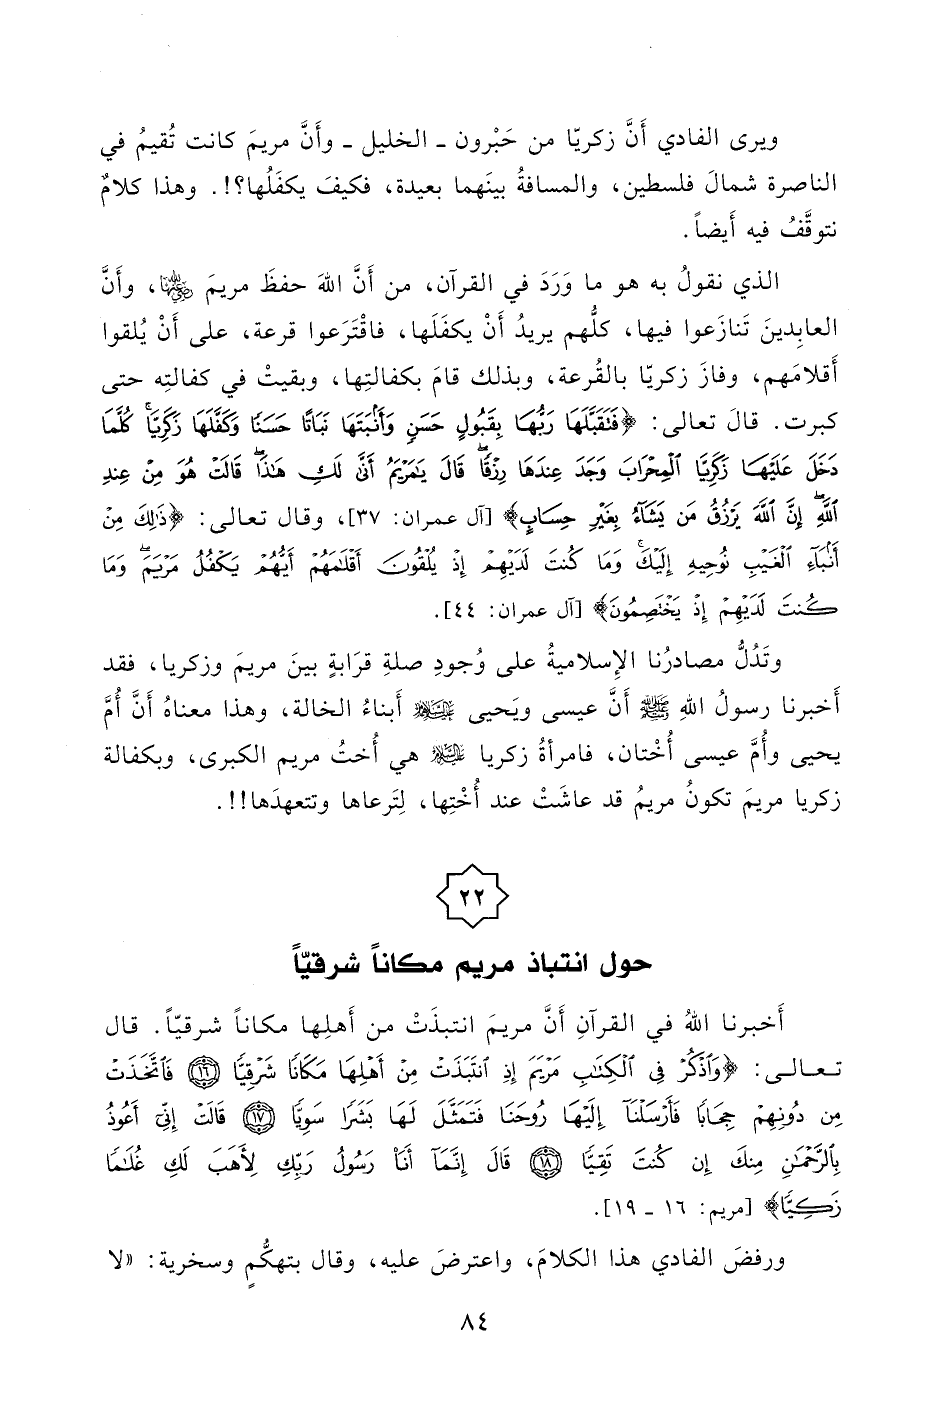 ويرى الفادي أَنَّ زكريّا من حَبْرون ـ الخليل ـ وأَنَّ مريمَ كانت تُقيمُ في
الناصرة شمالَ فلسطين، والمسافةُ بينَهما بعيدة، فكيفَ يكفَلُها؟!. وهذا كلامٌ
نتوقَّفُ فيه أَيضاً.
الذي نقولُ به هو ما وَرَدَ في القرآن، من أَنَّ اللهَ حفظَ مريمَ ، وأَنَّ
العابِدينَ تَنازَعوا فيها، كلُّهم يريدُ أَنْ يكفَلَها، فاقْتَرَعوا قرعة، على أَنْ يُلقوا
أَقلامَهم، وفازَ زكريّا بالقُرعة، وبذلك قامَ بكفالتِها، وبقيتْ في كفالتِه حتى
كبرت. قالَ تعالى: ﴿فَتَقَبَّلَهَا رَبُّهَا بِقَبُولٍ حَسَنٍ وَأَنۢبَتَهَا نَبَاتًا حَسَنًا وَكَفَّلَهَا زَكَرِيَّاۖ كُلَّمَا
دَخَلَ عَلَيْهَا زَكَرِيَّا ٱلْمِحْرَابَ وَجَدَ عِندَهَا رِزْقًاۖ قَالَ يَٰمَرْيَمُ أَنَّىٰ لَكِ هَٰذَاۖ قَالَتْ هُوَ مِنْ عِندِ
ٱللَّهِۖ إِنَّ ٱللَّهَ يَرْزُقُ مَن يَشَآءُ بِغَيْرِ حِسَابٍ﴾ [آل عمران: ٣٧]، وقال تعالى: ﴿ذَٰلِكَ مِنْ
أَنۢبَآءِ ٱلْغَيْبِ نُوحِيهِ إِلَيْكَۚ وَمَا كُنتَ لَدَيْهِمْ إِذْ يُلْقُونَ أَقْلَٰمَهُمْ أَيُّهُمْ يَكْفُلُ مَرْيَمَۖ وَمَا
كُنتَ لَدَيْهِمْ إِذْ يَخْتَصِمُونَ﴾ [آل عمران: ٤٤].
وتَدُلُّ مصادرُنا الإِسلاميةُ على وُجودِ صلةِ قرَابةٍ بينَ مريمَ وزكريا، فقد
أَخبرنا رسولُ اللهِ ﷺ أَنَّ عيسى ويَحيى أَبناءُ الخالة، وهذا معناهُ أَنَّ أُمَّ
يحيى وأُمَّ عيسى أُختان، فامرأةُ زكريا هي أُختُ مريم الكبرى، وبكفالة
زكريا مريمَ تكونُ مريمُ قد عاشَتْ عند أُخْتِها، لِتَرعاها وتتعهدَها!!.
٢٢
حول انتباذ مريم مكاناً شرقيّاً
أَخبرنا اللهُ في القرآنِ أَنَّ مريمَ انتبذَتْ من أَهلِها مكاناً شرقيّاً. قال
تعالى: ﴿وَٱذْكُرْ فِى ٱلْكِتَٰبِ مَرْيَمَ إِذِ ٱنتَبَذَتْ مِنْ أَهْلِهَا مَكَانًا شَرْقِيًّا ١٦ فَٱتَّخَذَتْ
مِن دُونِهِمْ حِجَابًا فَأَرْسَلْنَآ إِلَيْهَا رُوحَنَا فَتَمَثَّلَ لَهَا بَشَرًا سَوِيًّا ١٧ قَالَتْ إِنِّىٓ أَعُوذُ
بِٱلرَّحْمَٰنِ مِنكَ إِن كُنتَ تَقِيًّا ١٨ قَالَ إِنَّمَآ أَنَا۠ رَسُولُ رَبِّكِ لِأَهَبَ لَكِ غُلَٰمًا
زَكِيًّا﴾ [مريم: ١٦ ـ ١٩].
ورفضَ الفادي هذا الكلامَ، واعترضَ عليه، وقال بتهكُّمٍ وسخرية: «لا
٨٤